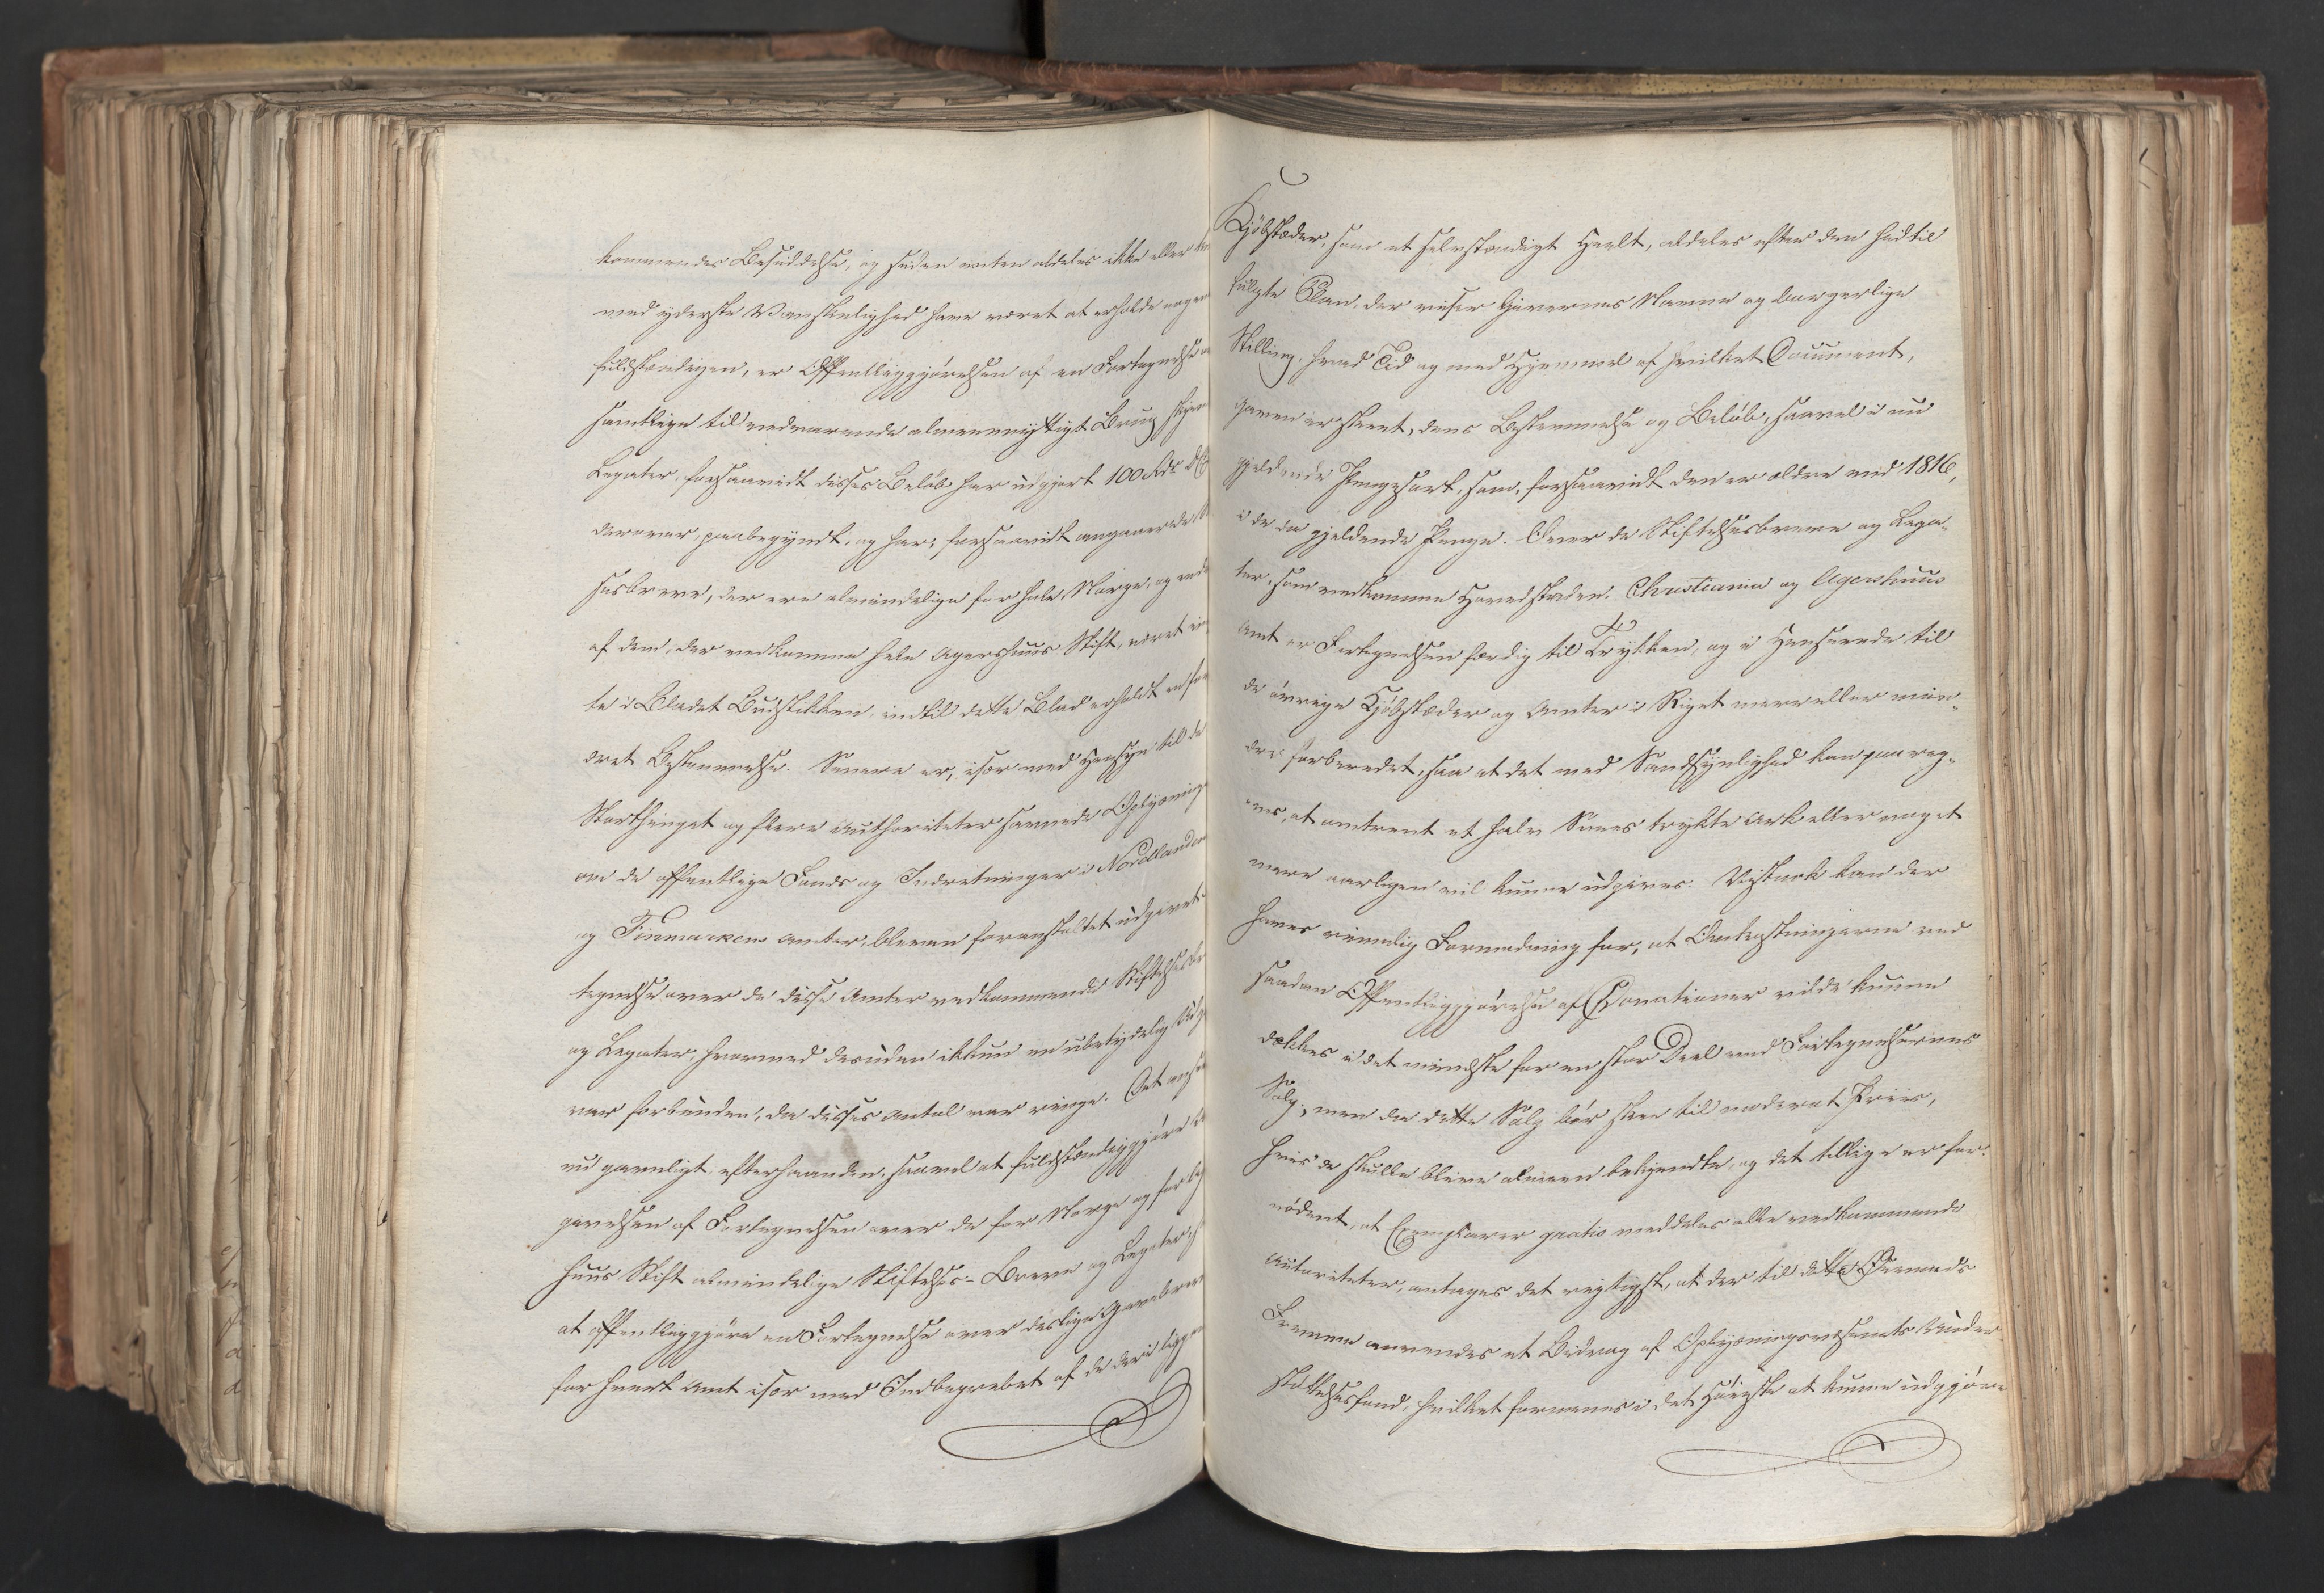 kommendes Besiddelse, og siden enten aldeles ikke eller
med yderste Vanskelighed have været at erholde nogen
fuldstændigen, er Offentliggjørelsen af en Fortegnelse
samtlige til vedvarende almeennyttigt Brug
Legater, forsaavidt disses Beløb har udgjort 100 Rdr
derover, paabegyndt, og har, forsaavidt angaaer de
sesbreve, der ere almindelige for hele Norge, og
af dem, der vedkomme hele Agershuus Stift, været
te i Bladet Budstikken, indtil dette Blad erholdt en
dret Bestemmelse. Senere er, især med Hensyn til de
Storthinget og flere Authoriteter savnede Oplysning
om de offentlige Fonds og Indretninger i Nordlanden
og Finmarkens Amter, bleven foranstaltet udgivet
tegnelse over de disse Amter vedkommende Stiftelses
og Legater, hvormed desuden ikkun en ubetydelig
var forbunden, da disses Antal var ringe. Det
nu gavnligt efterhaanden, saavel at fuldstændiggjøre
givelsen af Fortegnelsen over de for Norge og for
huus Stift almindelige Stiftelses-Breve og Legater,
at offentliggjøre en Fortegnelse over deslige Gavebreve
for hvert Amt især med Indbegrebet af de deri
Kjøbstæder, som et selvstændigt Heelt, aldeles efter den hidtil
fulgte Plan, der viser Giverens Navne og borgerlige
Stilling, hvad Tid og med Hjemmel af hvilket Document,
Gaven er skeet, dens Bestemmelse og Beløb, saavel i nu
gjeldende Pengesort, som, forsaavidt den er ældre end 1816,
i de da gjeldende Penge. Over de Stiftelsesbreve og Lega-
ter, som vedkomme Hovedstaden Christiania og Agershuus
Amt er Fortegnelsen færdig til Trykken, og i Henseende til
de øvrige Kjøbstæder og Amter i Riget mere eller min-
dre forberedet, saa at det med Sandsynlighed kan paareg-
nes, at omtrent et halv Snees trykte Ark eller noget
mere aarligen vil kunne udgives. Vistnok kan der
haves rimelig Formodning for, at Omkostningerne ved
saadan Offentliggjørelse af Donationer vilde kunne
dækkes i det mindste for en stor Deel ved Fortegnelsernes
Salg; men da dette Salg bør skee til moderat Priis,
hvis de skulle blive almeen bekjendte, og det tillige er for-
nødent, at Exemplarer gratis meddeles alle vedkommende
Autoriteter, antages det rigtigst, at der til dette Øiemeds
Fremme anvendes et Bidrag af Oplysningsvæsenets Under-
støttelsesfond, hvilket formenes i det Høieste at kunne udgjøre